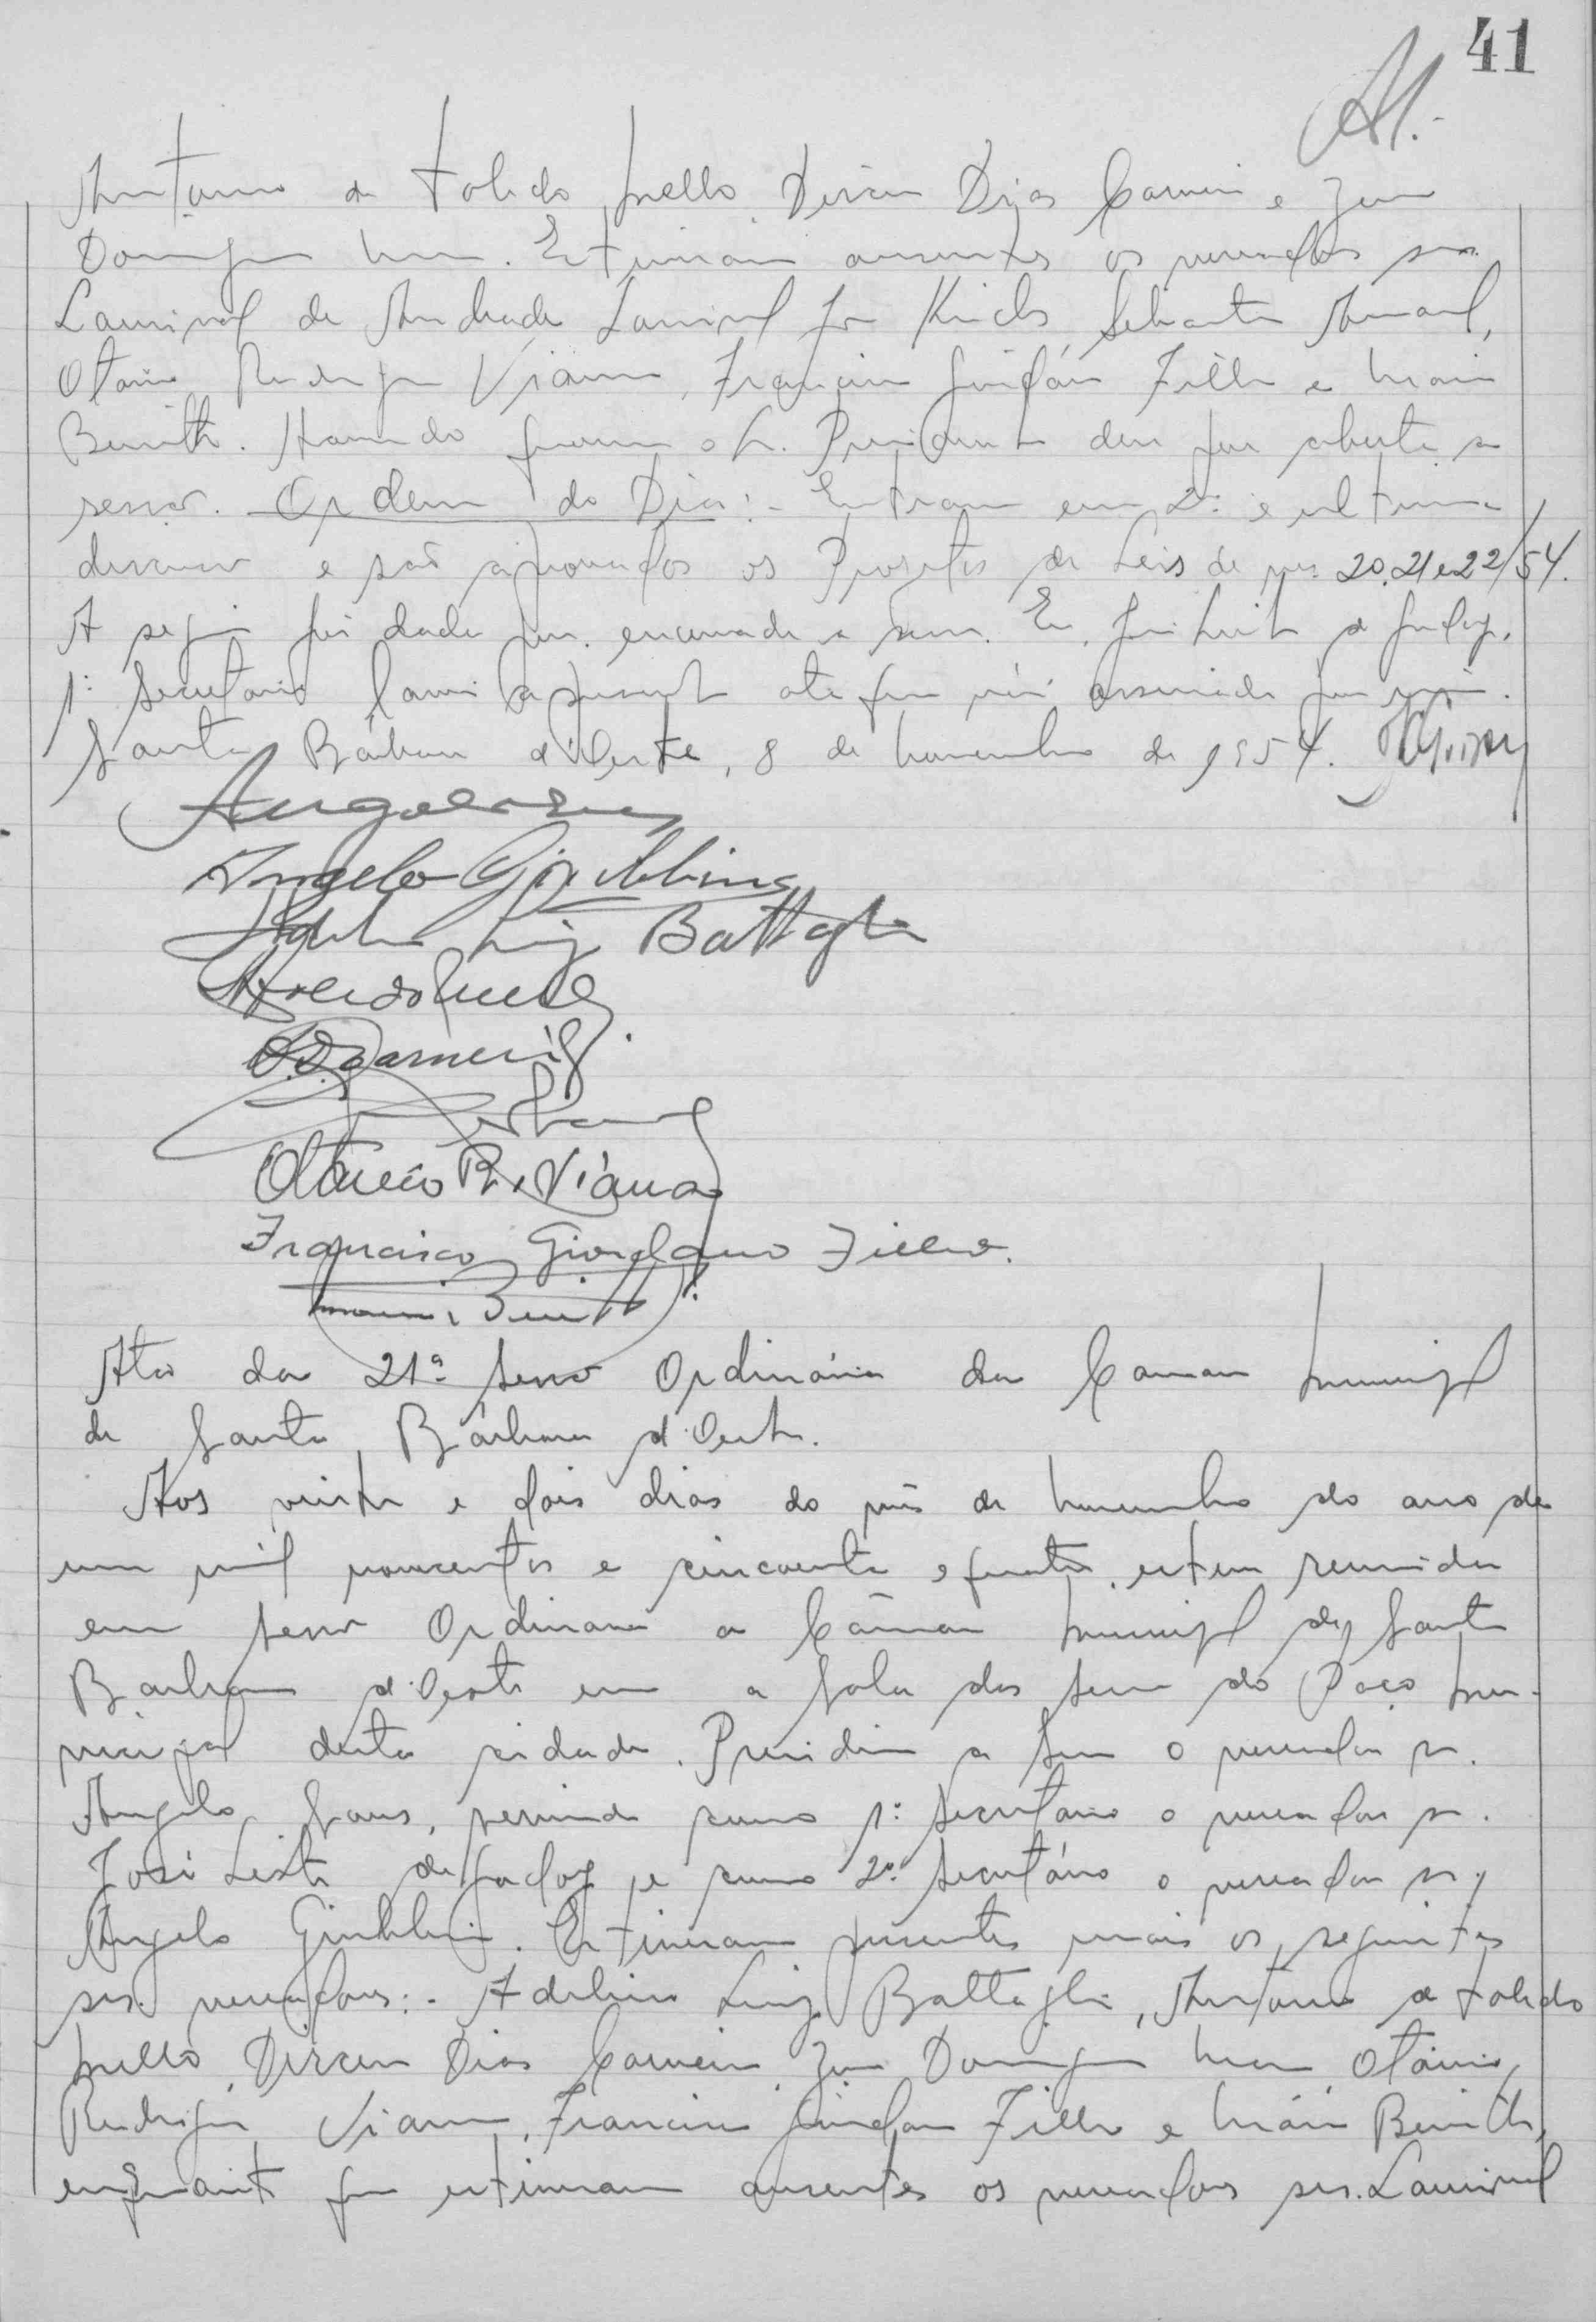 41
Antonio de Toledo Mello, Dirceu Dias Carneiro e
Domingos. Estiveram ausentes os vereadores srs.
Laurival de Andrade, Lourival Kinds, Sebastião Amaral,
Otavio Rodrigues Viana, Francisco Giordano Filho e Mario
Benith. Havendo numero o sr. Presidente deu por aberta a
sessão. Ordem do Dia:- Entram em 2ª e ultima
discussão e são aprovados os Projetos de Leis de nrs. 20, 21 e 22/54.
A seguir foi dada por encerrada a sessão. Eu, José Leite de Godoy,
1º Secretario lavrei a presente ata que vai assinada por mim.
Santa Bárbara d'Oeste, 8 de novembro de 1954.
Angelo
Angelo Giubbina
Adelino Luiz Battaglia
Otavio R. Viana
Francisco Giordano Filho.
Mario Benith
Ata da 21ª Sessão Ordinária da Camara Municipal
de Santa Bárbara d'Oeste.
Aos vinte e dois dias do mês de novembro do ano de
um mil novecentos e cincoenta e quatro, esteve reunida
em sessão Ordinaria a Câmara Municipal de Santa
Barbara d'Oeste em a Sala das Sessões do Paço Mu-
nicipal desta cidade. Presidiu a Sessão o vereador sr.
Angelo Sans, servindo como 1º Secretario o vereador sr.
José Leite de Godoy e como 2º Secretário o vereador sr.
Angelo Giubbina. Estiveram presentes mais os seguintes
srs. vereadores:- Adelino Luiz Battaglia, Antonio de Toledo
Mello, Dirceu Dias Carneiro, Domingos, Otávio
Rodrigues Viana, Francisco Giordano Filho e Mário Benith,
enquanto que estiveram ausentes os vereadores srs. Laurival